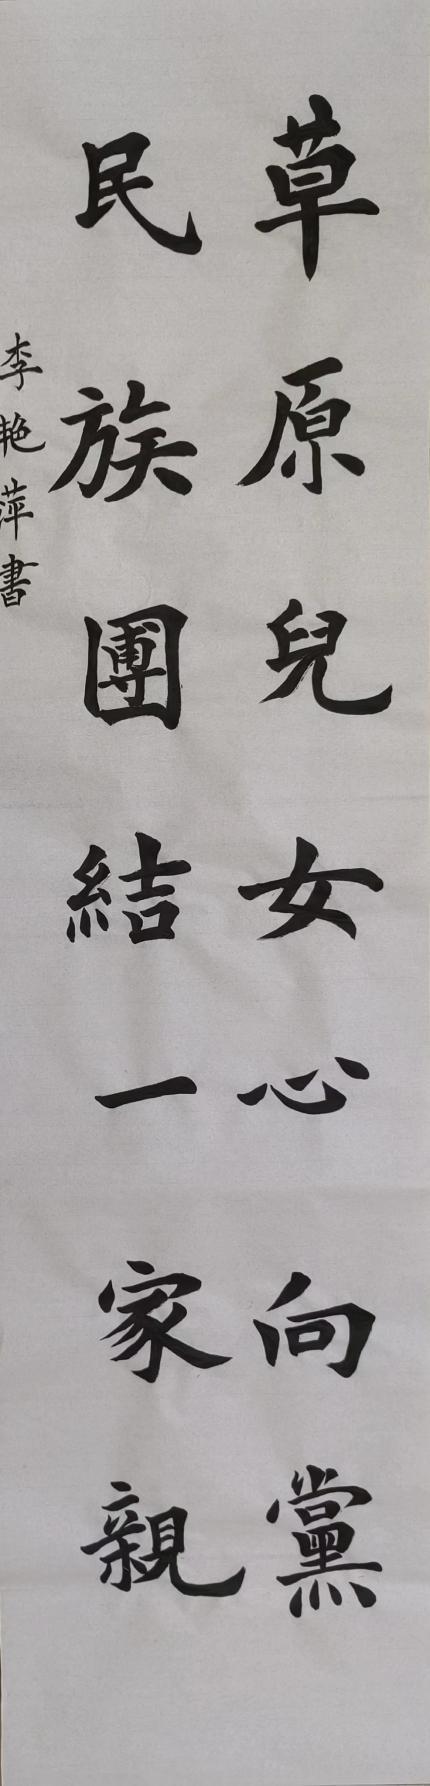 草原兒女心向黨
民族團結一家親
李艳萍書